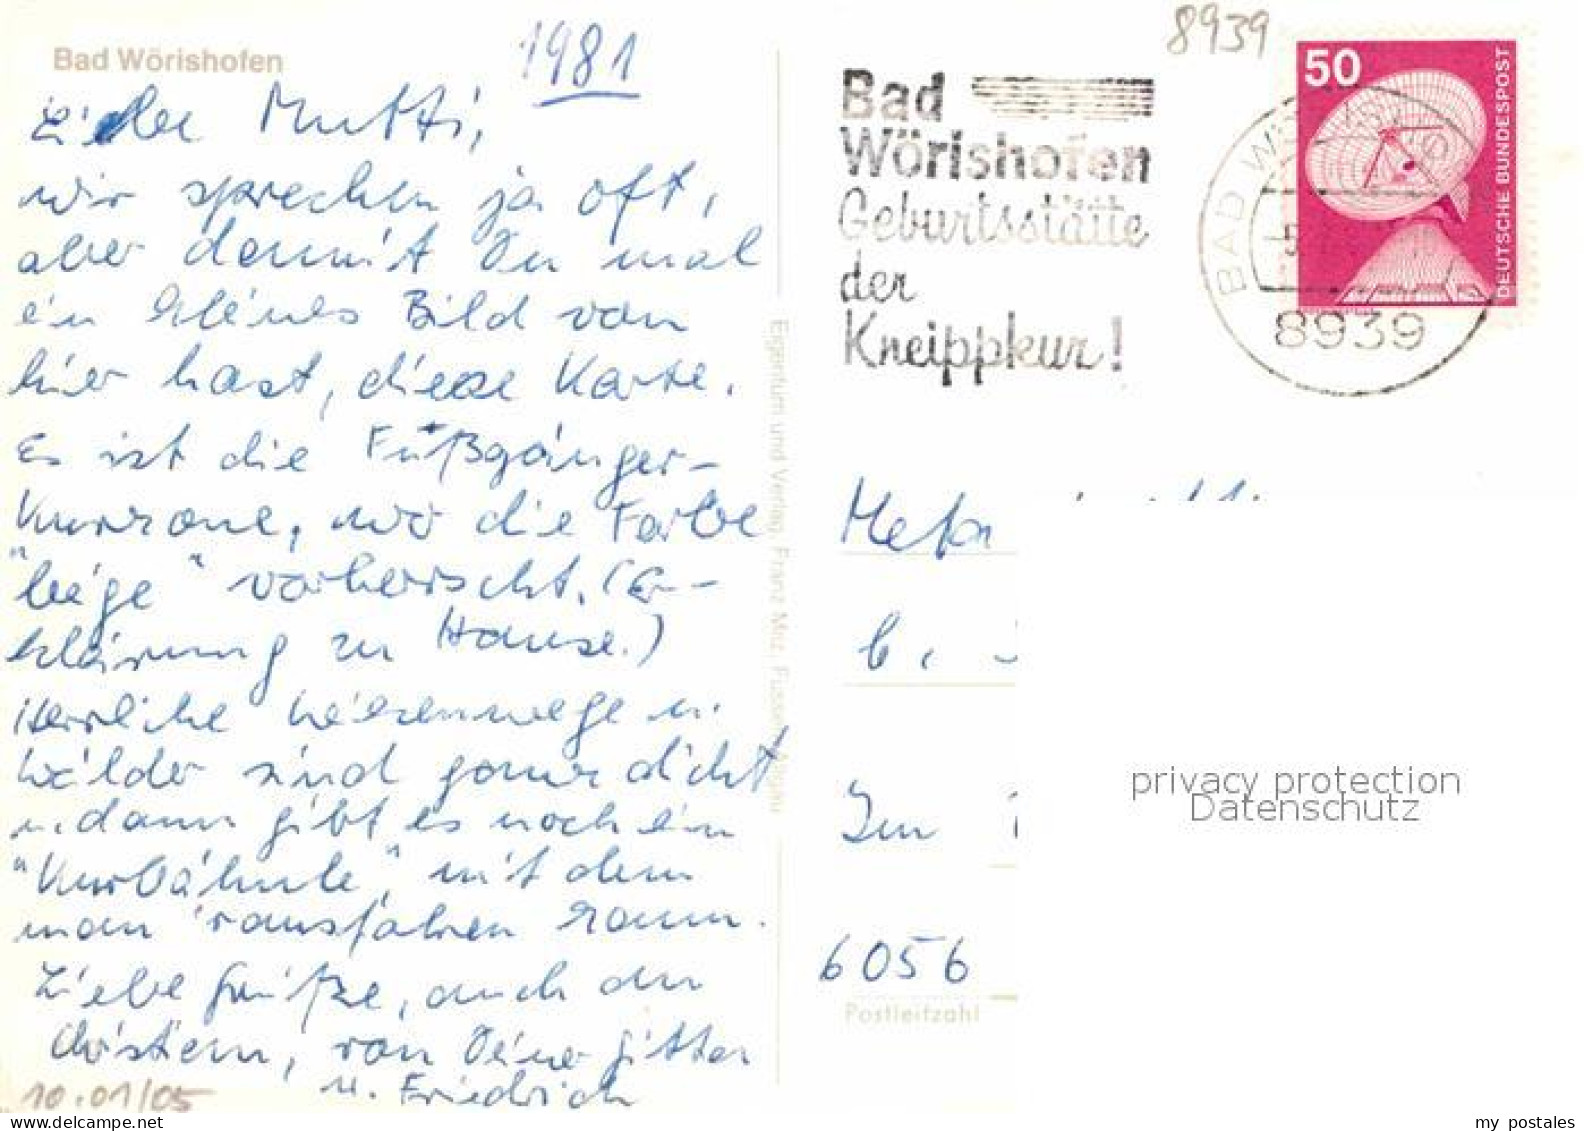 Bad Wörishofen
1981
Liebe Mutti,
wir sprechen ja oft,
aber damit Du mal
ein kleines Bild von
hier hast, diese Karte.
Es ist die Fußgänger-
Kurzone, wo die Farbe
"beige" vorherrscht. (Er-
klärung zu Hause.)
Herrliche Wiesenwege u.
Wälder sind ganz dicht
u. dann gibt es noch ein
"Kurbähnle", mit dem
man 'rausfahren kann.
Liebe Grüße, auch an
Christern, von Deiner Gitta
u. Friedrich
10.01/05
Eigentum und Verlag, Franz Milz, Füssen, Allgäu
8939
Bad
Wörishofen
Geburtsstätte
der
Kneippkur!
50
DEUTSCHE BUNDESPOST
BAD WÖ
8939
Meta
b.
Im
6056
Postleitzahl
privacy protection
Datenschutz
my postales